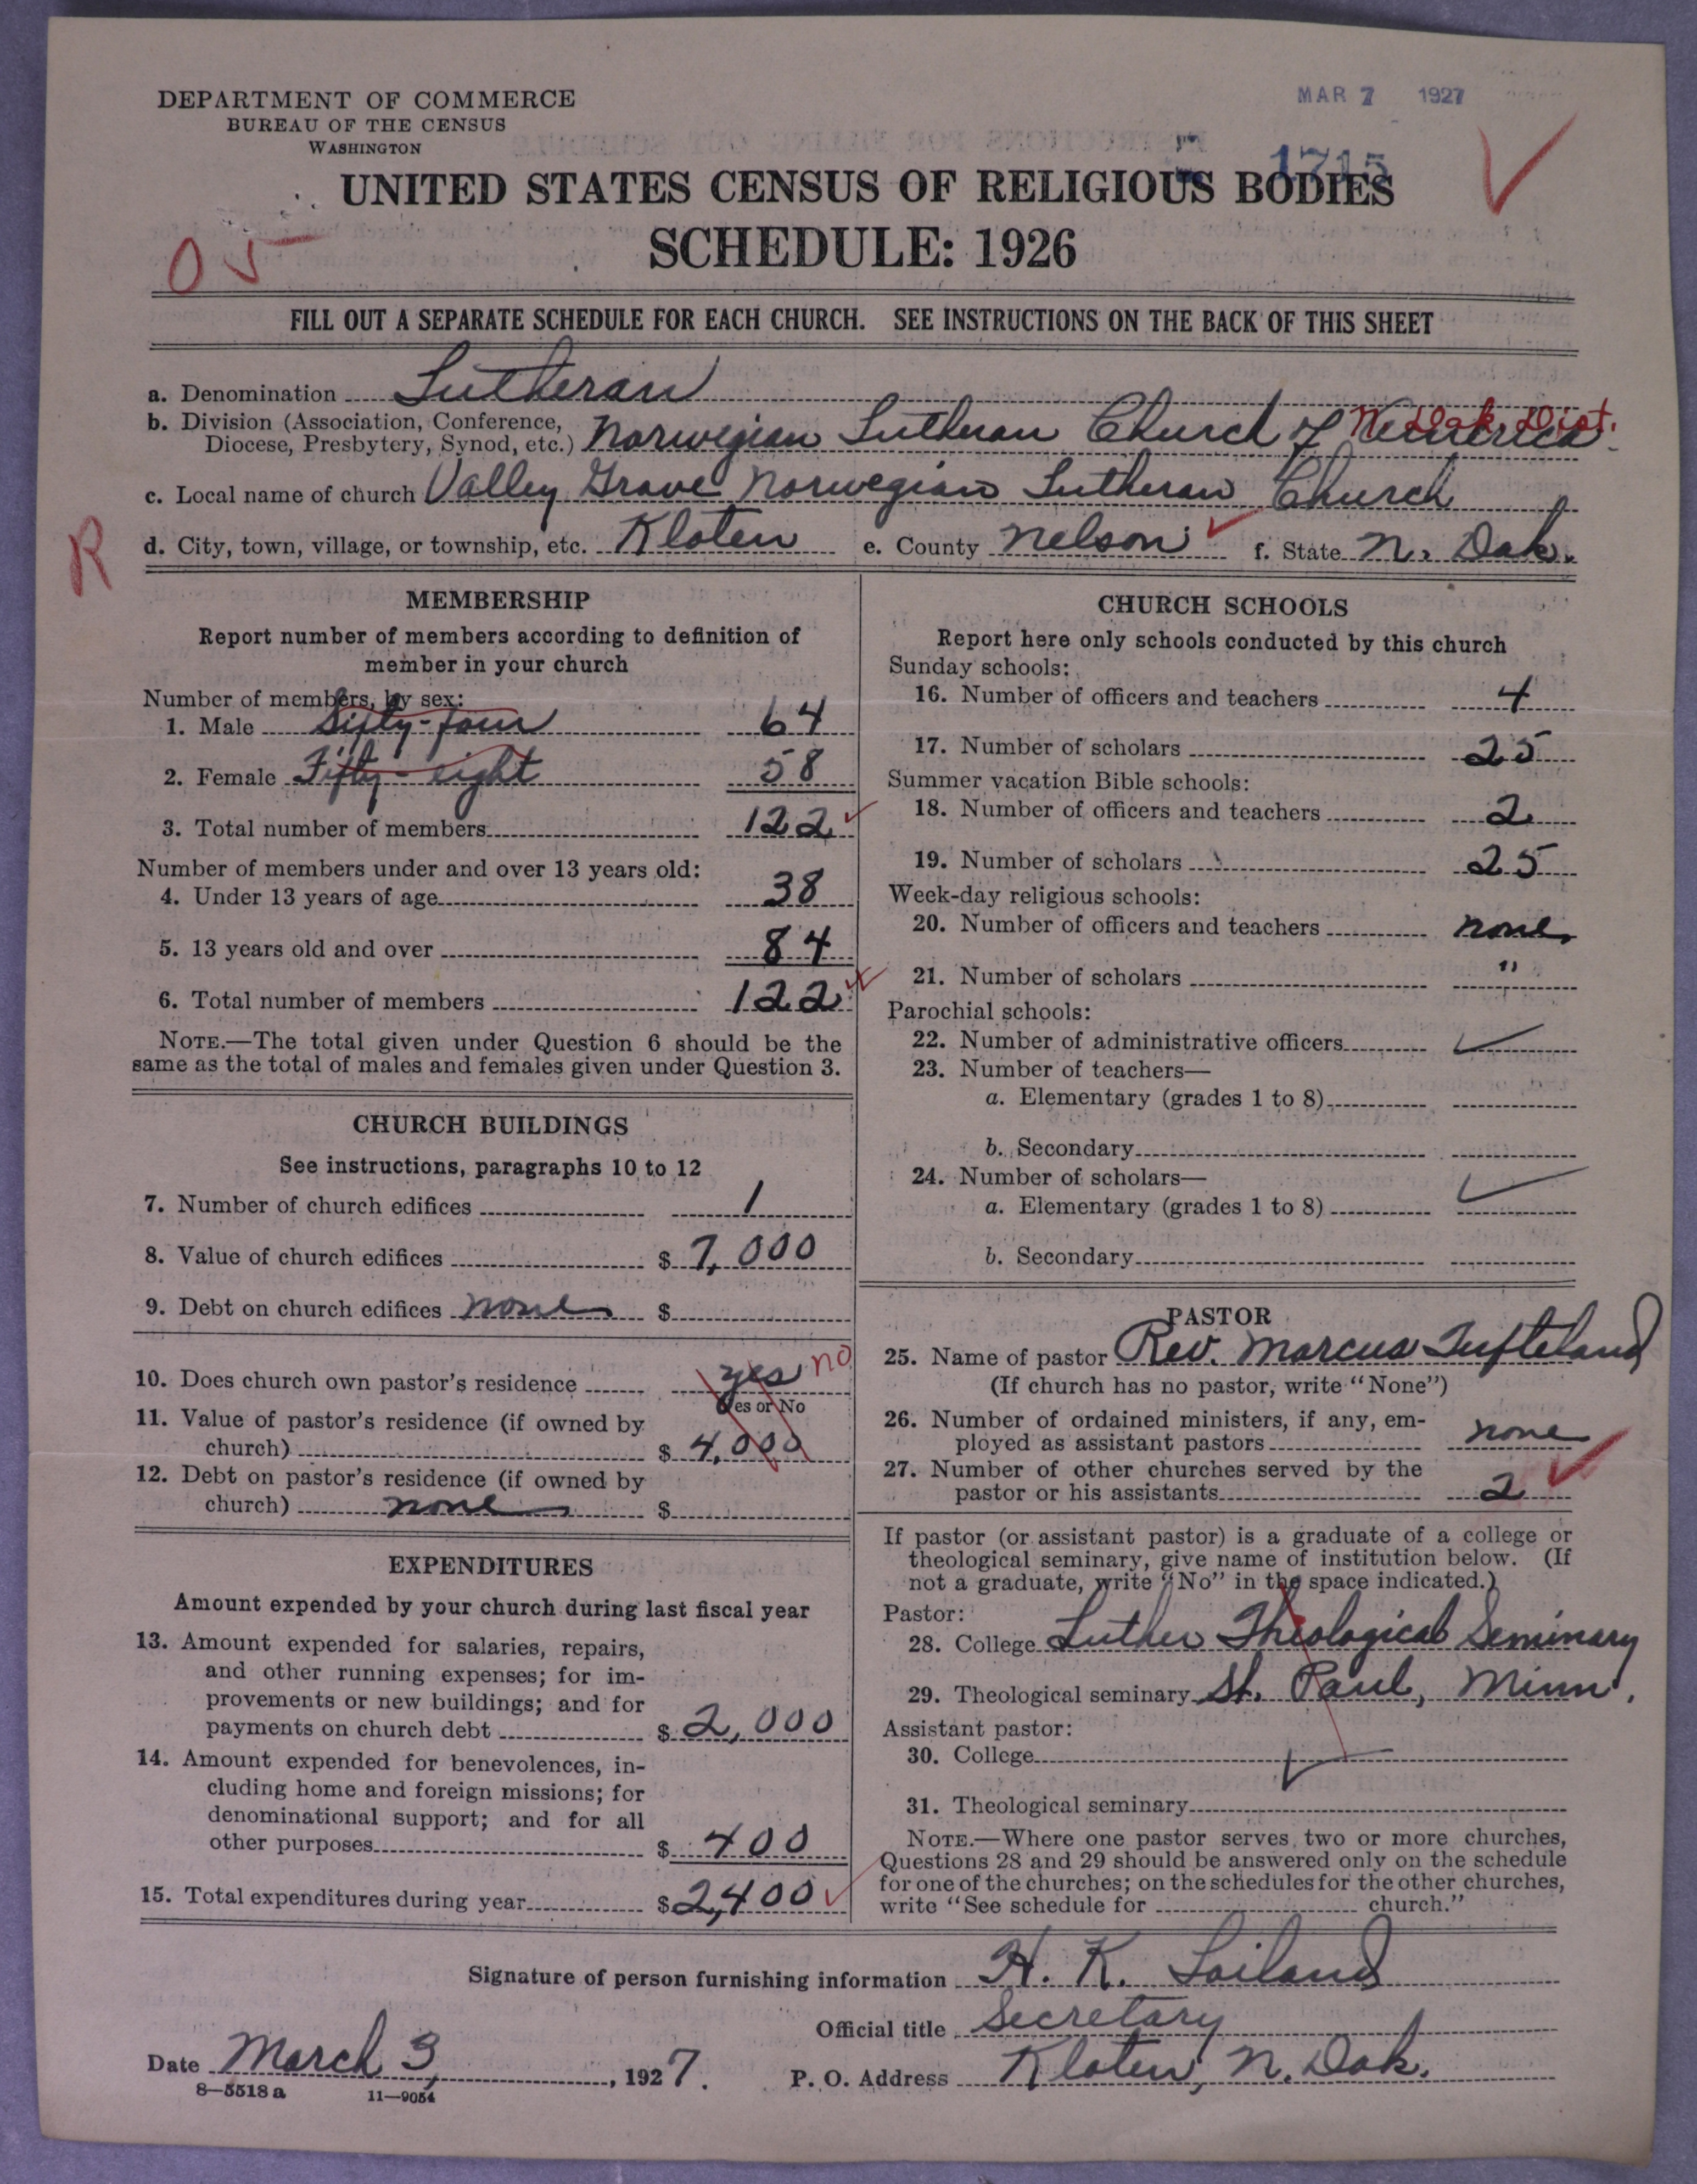 DEPARTMENT OF COMMERCE
BUREAU OF THE CENSUS
WASHINGTON
MAR 7 1927
1715
UNITED STATES CENSUS OF RELIGIOUS BODIES
SCHEDULE: 1926
05
FILL OUT A SEPARATE SCHEDULE FOR EACH CHURCH. SEE INSTRUCTIONS ON THE BACK OF THIS SHEET
a. Denomination Lutheran
b. Division (Association, Conference, Diocese, Presbytery, Synod, etc.) Norwegian Lutheran Church of America N. Dak. Dist.
c. Local name of church Valley Grove Norwegian Lutheran Church
R
d. City, town, village, or township, etc. Kloten e. County Nelson f. State N. Dak.
MEMBERSHIP
Report number of members according to definition of
member in your church
Number of members, by sex:
1. Male Sixty-four 64
2. Female Fifty-eight 58
3. Total number of members 122
Number of members under and over 13 years old:
4. Under 13 years of age 38
5. 13 years old and over 84
6. Total number of members 122
NOTE.—The total given under Question 6 should be the
same as the total of males and females given under Question 3.
CHURCH BUILDINGS
See instructions, paragraphs 10 to 12
7. Number of church edifices 1
8. Value of church edifices $ 7,000
9. Debt on church edifices none $
10. Does church own pastor's residence yes no
Yes or No
11. Value of pastor's residence (if owned by
church) $ 4,000
12. Debt on pastor's residence (if owned by
church) none $
EXPENDITURES
Amount expended by your church during last fiscal year
13. Amount expended for salaries, repairs,
and other running expenses; for im-
provements or new buildings; and for
payments on church debt $ 2,000
14. Amount expended for benevolences, in-
cluding home and foreign missions; for
denominational support; and for all
other purposes $ 400
15. Total expenditures during year $ 2,400
CHURCH SCHOOLS
Report here only schools conducted by this church
Sunday schools:
16. Number of officers and teachers 4
17. Number of scholars 25
Summer vacation Bible schools:
18. Number of officers and teachers 2
19. Number of scholars 25
Week-day religious schools:
20. Number of officers and teachers none
21. Number of scholars "
Parochial schools:
22. Number of administrative officers
23. Number of teachers—
a. Elementary (grades 1 to 8)
b. Secondary
24. Number of scholars—
a. Elementary (grades 1 to 8)
b. Secondary
PASTOR
25. Name of pastor Rev. Marcus Tufteland
(If church has no pastor, write "None")
26. Number of ordained ministers, if any, em-
ployed as assistant pastors none
27. Number of other churches served by the
pastor or his assistants 2
If pastor (or assistant pastor) is a graduate of a college or
theological seminary, give name of institution below. (If
not a graduate, write "No" in the space indicated.)
Pastor:
28. College Luther Theological Seminary
29. Theological seminary St. Paul, Minn.
Assistant pastor:
30. College
31. Theological seminary
NOTE.—Where one pastor serves two or more churches,
Questions 28 and 29 should be answered only on the schedule
for one of the churches; on the schedules for the other churches,
write "See schedule for church."
Signature of person furnishing information H. K. Loiland
Official title Secretary
Date March 3, 1927. P. O. Address Kloten, N. Dak.
8—5518 a 11—9054